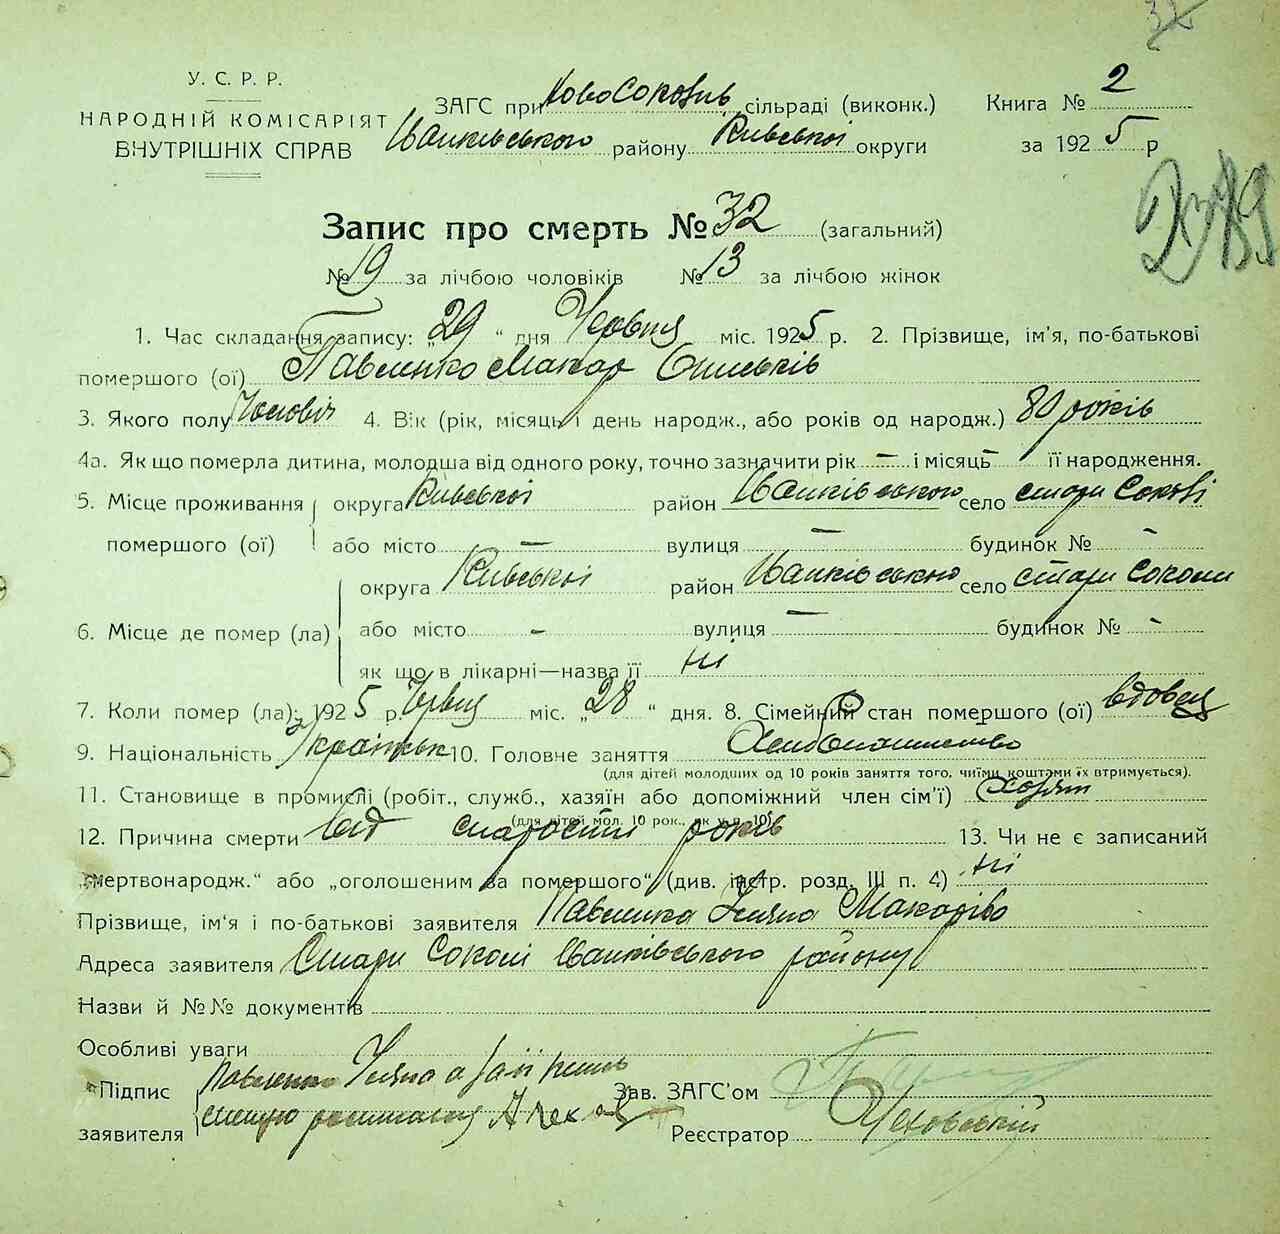 32
У. С. Р. Р.
НАРОДНІЙ КОМІСАРІЯТ
ВНУТРІШНІХ СПРАВ
ЗАГС при Новосоколів сільраді (виконк.)
Іванківського району Київської округи
Книга № 2
за 1925 р
Запис про смерть № 32 (загальний)
№ 19 за лічбою чоловіків № 13 за лічбою жінок
1. Час складання запису: „29“ дня Червця міс. 1925 р. 2. Прізвище, ім'я, по-батькові
помершого (ої) Павленко Макар
3. Якого полу Чоловіч 4. Вік (рік, місяць і день народж., або років од народж.) 80 років
4а. Як що померла дитина, молодша від одного року, точно зазначити рік — і місяць — її народження.
5. Місце проживання округа Київської район Іванківського село стари Соколі
помершого (ої) або місто — вулиця — будинок № -
округа Київської район Іванківського село стари Соколи
6. Місце де помер (ла) або місто - вулиця — будинок № -
як що в лікарні—назва її ні
7. Коли помер (ла): 1925 р. Червця міс. „28“ дня. 8. Сімейний стан помершого (ої) вдовец
9. Національність Українськ 10. Головне заняття Хлібопашество
(для дітей молодших од 10 років заняття того, чиїми коштами їх втримується).
11. Становище в промислі (робіт., служб., хазяїн або допоміжний член сім'ї) хозяін
(для дітей мол. 10 рок., як у п. 10)
12. Причина смерти від старости років 13. Чи не є записаний
„мертвонародж.“ або „оголошеним за помершого“ (див. інстр. розд. III п. 4) ні
Прізвище, ім'я і по-батькові заявителя Павленка Уляна Макаріво
Адреса заявителя Стари Соколі Іванківського району
Назви й №№ документів
Особливі уваги
Підпис Павленко Уляна а за її
заявителя
Зав. ЗАГС'ом
Реєстратор